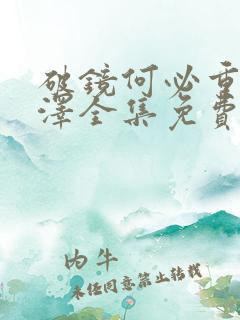 破镜何必重
泽全集免费
内牛
未经同意禁止转载